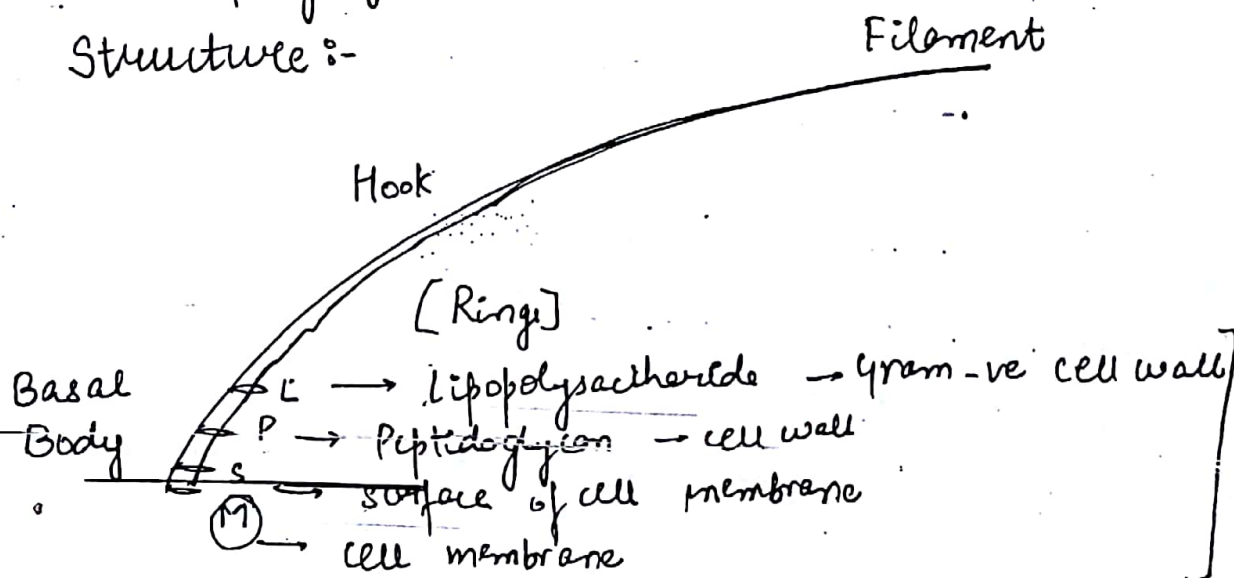 Structure :-
Filament
Hook
[Rings]
Basal
Body
L → Lipopolysaccharide → Gram -ve cell wall
P → Peptidoglycan → cell wall
S → surface of cell membrane
M → cell membrane